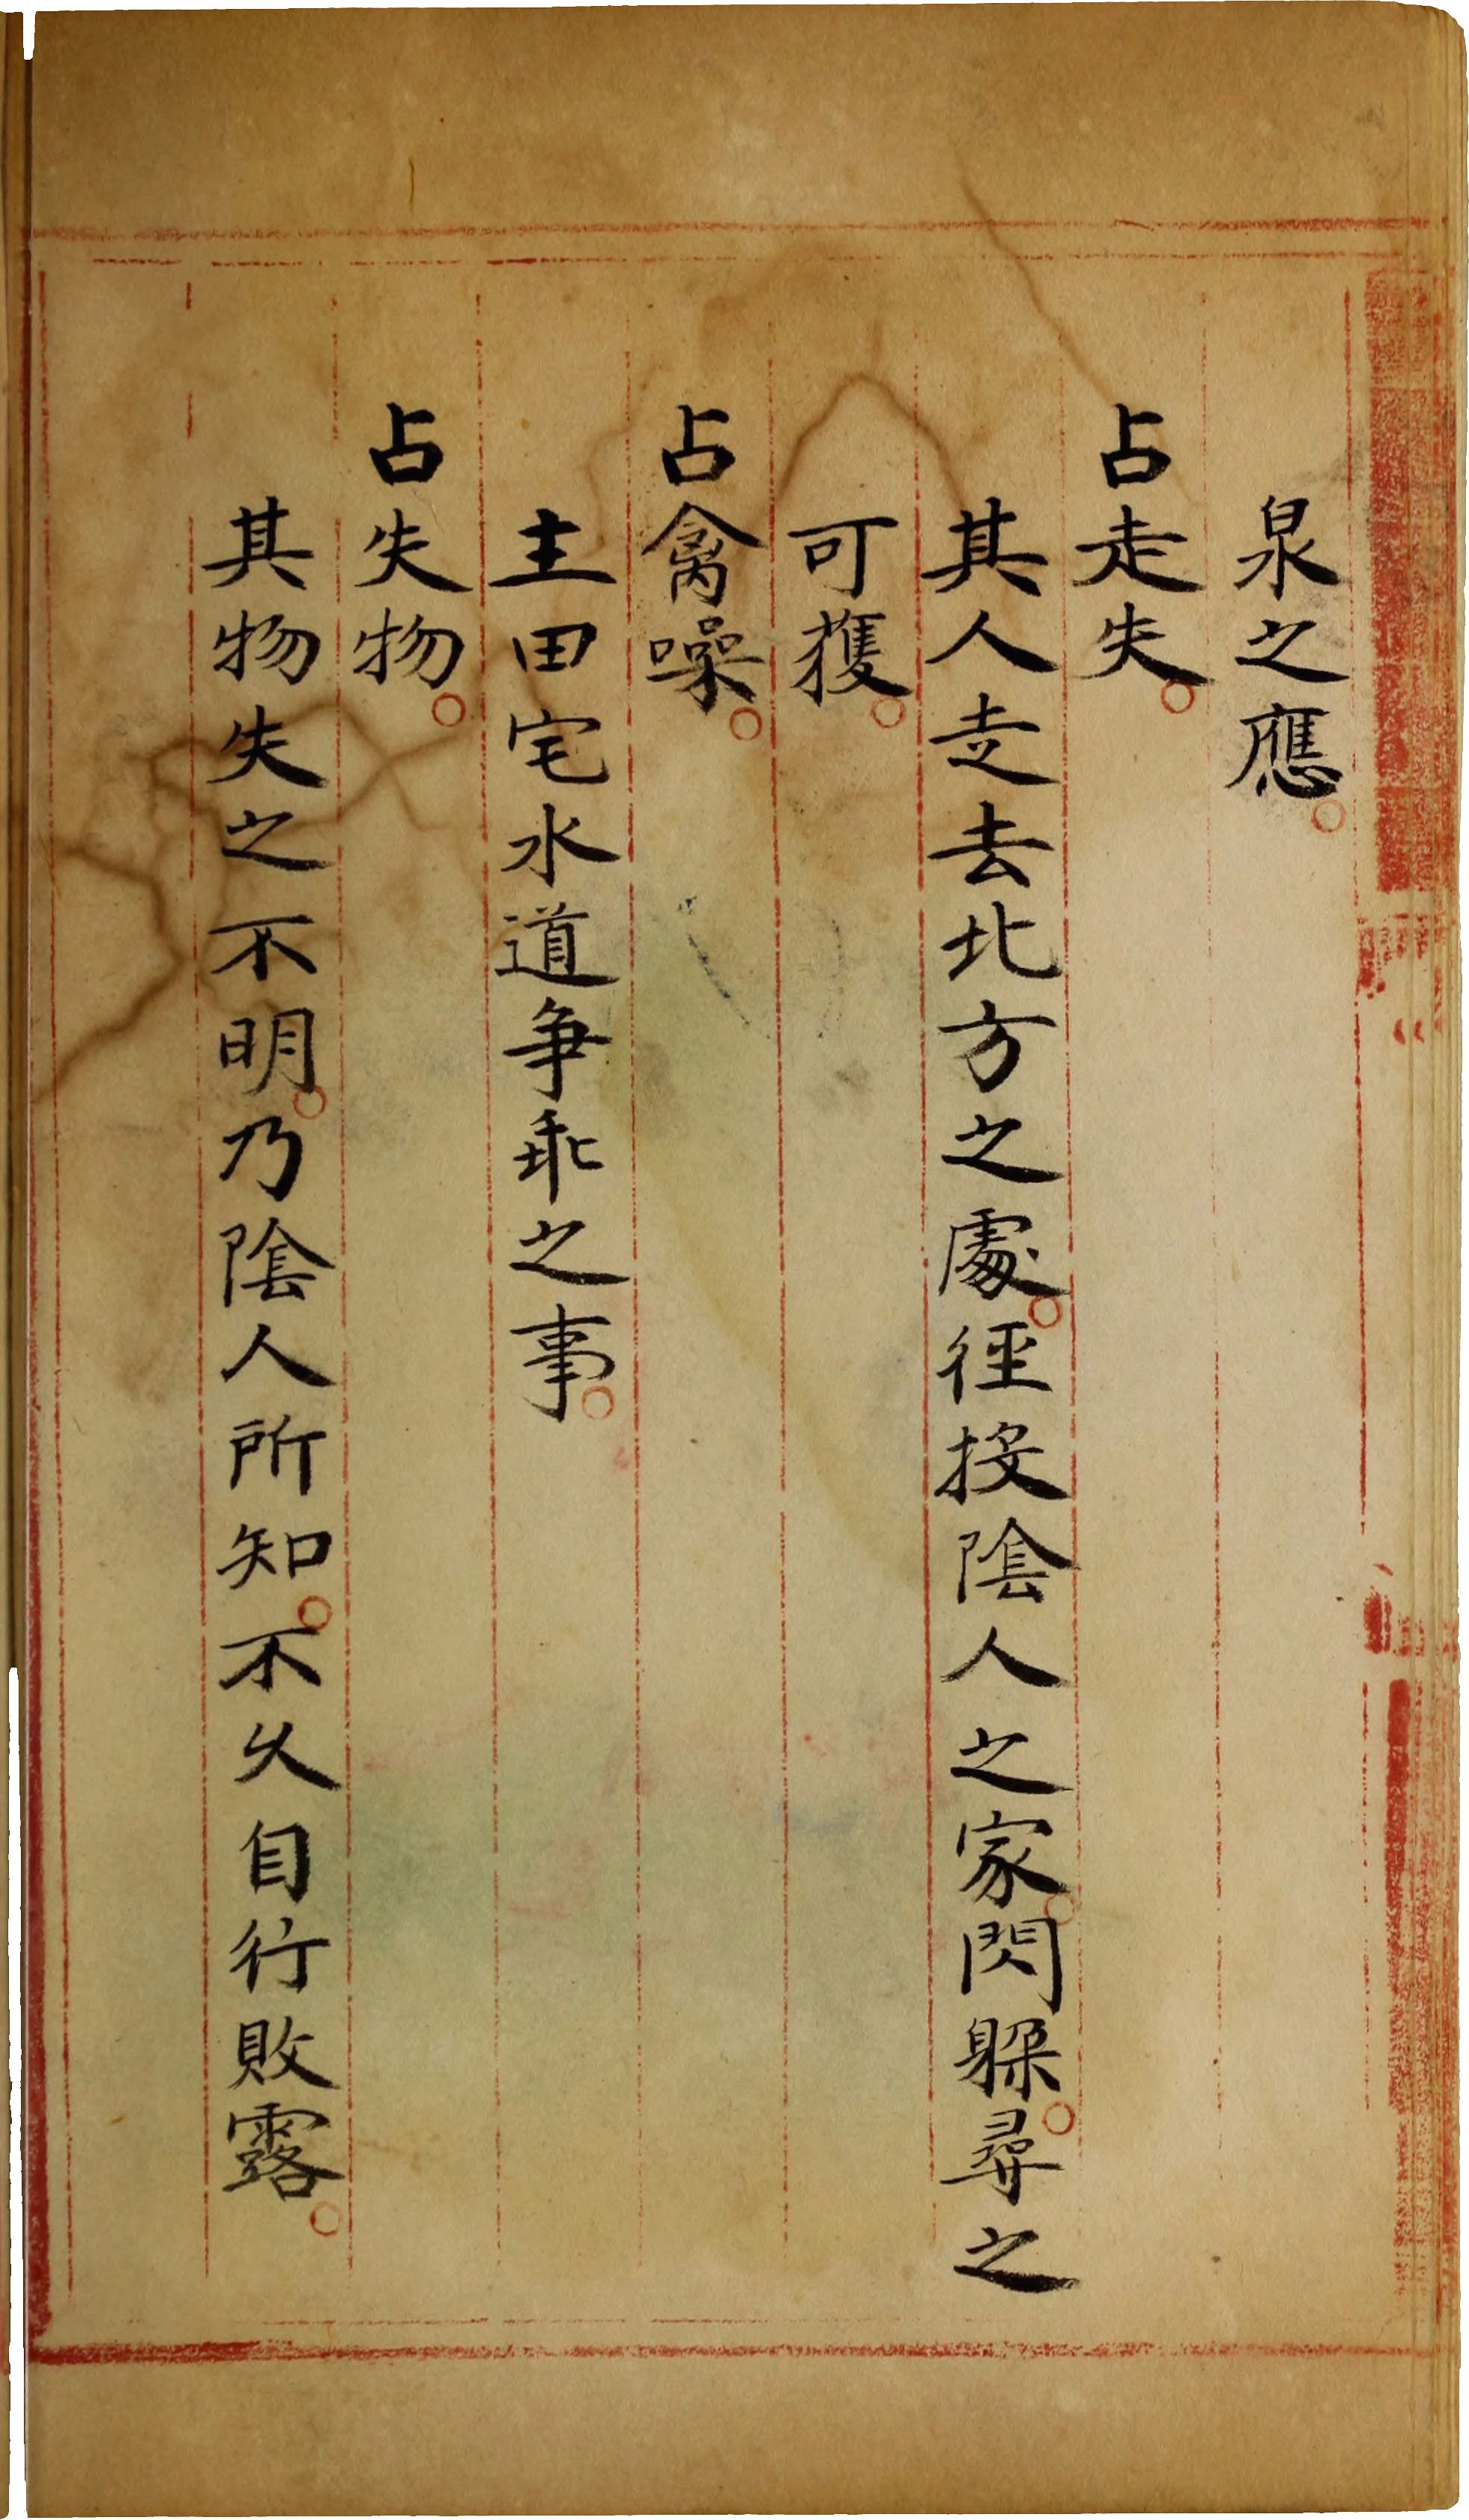 泉之應。
占走失。
其人走去北方之處。徑投陰人之家。閃躲。尋之
可獲。
占禽噪。
主田宅水道爭乖之事。
占失物。
其物失之不明。乃陰人所知。不久自行敗露。